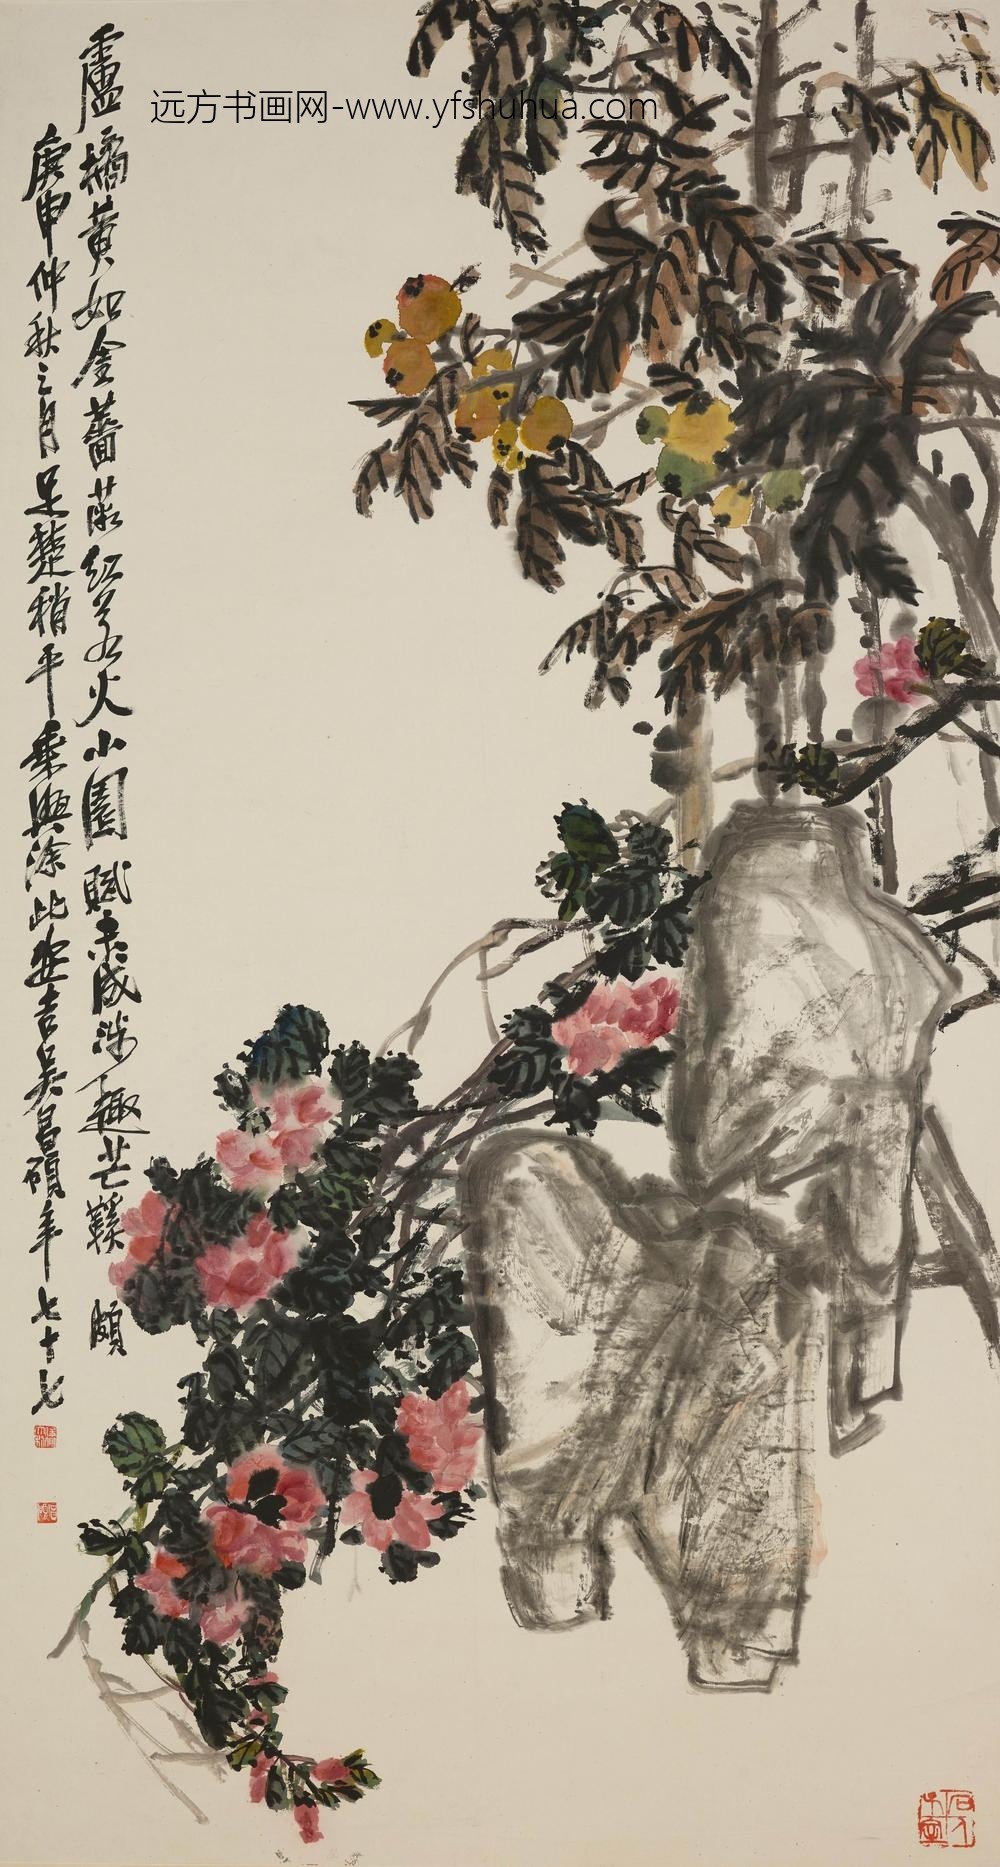 远方书画网-www.yfshuhua.com
盧橘黄如金薔薇红若火小園賦未成涉趣芒鞵頗
庚申仲秋之月足楚稍平乘興涂此安吉吳昌碩年七十七